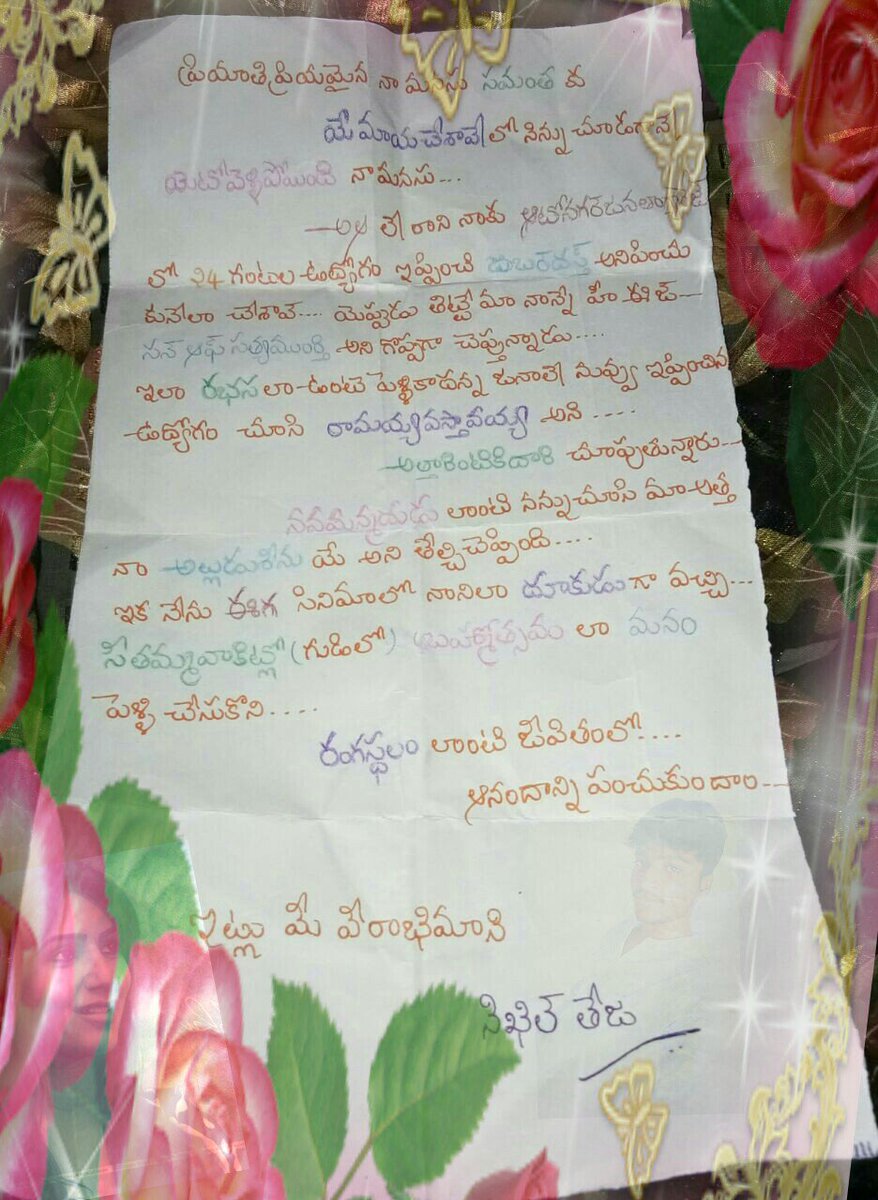 ప్రియాతి ప్రియమైన నా మనసు సమంత కు
యే మాయ చేశావే లో నిన్ను చూడగానే
యెటోవెళ్ళిపోయింది నామనసు...
లో 24 గంటల ఉద్యోగం ఇప్పించి అనిపించు
కునేలా చేశావె.... యెప్పుడు తిట్టే మా నాన్నే హి ఈజ్
సన్ ఆఫ్ సత్యమూర్తి అని గొప్పగా చెప్తున్నాడు....
ఇలా రభస లా ఉంటె పెళ్ళికాదన్న జనాలే నువ్వు ఇప్పించిన
ఉద్యోగం చూసి రామయ్యావస్తావయ్యా అని ....
అత్తారింటికిదారి చూపుతున్నారు--
నవమన్మధుడు లాంటి నన్నుచూసి మా అత్త
నా అల్లుడుశీను యే అని తేల్చిచెప్పింది....
ఇక నేను ఈగ సినిమాలో నానిలా దూకుడు గా వచ్చి...
సీతమ్మవాకిట్లో (గుడిలో) బ్రహ్మోత్సవం లా మనం
పెళ్ళి చేసుకొని....
రంగస్థలం లాంటి జీవితంలో....
ఆనందాన్ని పంచుకుందాం---
ఇట్లు మీ వీరాభిమాని
నిఖిల్ తేజ